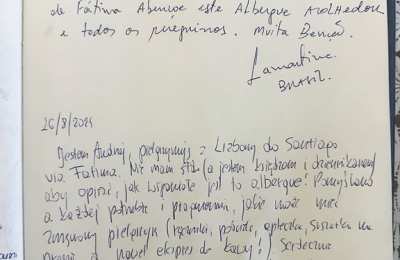 de Fátima Abençoe este Albergue Acolhedor
e todos os peregrinos. Muita Benção.
Lamartine.
BRASIL.
26/8/2024
Jestem Andrzej, pielgrzymuję z Lizbony do Santiago
via Fatima. Nie mam słów (a jestem księdzem i dziennikarzem)
aby opisać, jak wspaniałe jest to albergue! Pomyślano
o każdej potrzebie i pragnieniu, jakie może mieć
zmęczony pielgrzym (ręczniki, pościel, apteczka, suszarka na
pranie, a nawet ekspres do kawy!) Serdecznie